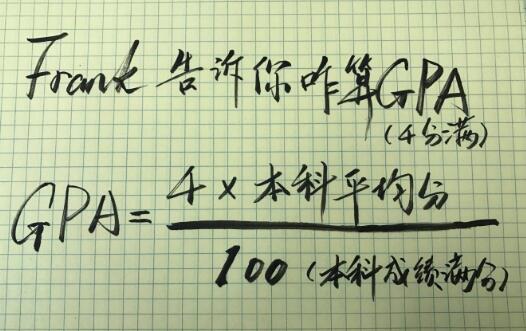 Frank 告诉你咋算GPA
(4分满)
GPA= 4 × 本科平均分
100 (本科成绩满分)